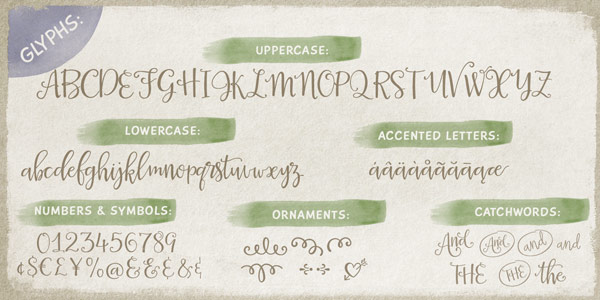 GLYPHS:
UPPERCASE:
ABCDEFGHIJKLMNOPQRSTUVWXYZ
LOWERCASE:
abcdefghijklmnopqrstuvwxyz
ACCENTED LETTERS:
áâäàåãāąæ
NUMBERS & SYMBOLS:
0123456789
¢$€£¥%@&&&&
ORNAMENTS:
CATCHWORDS:
And And and and
THE THE the